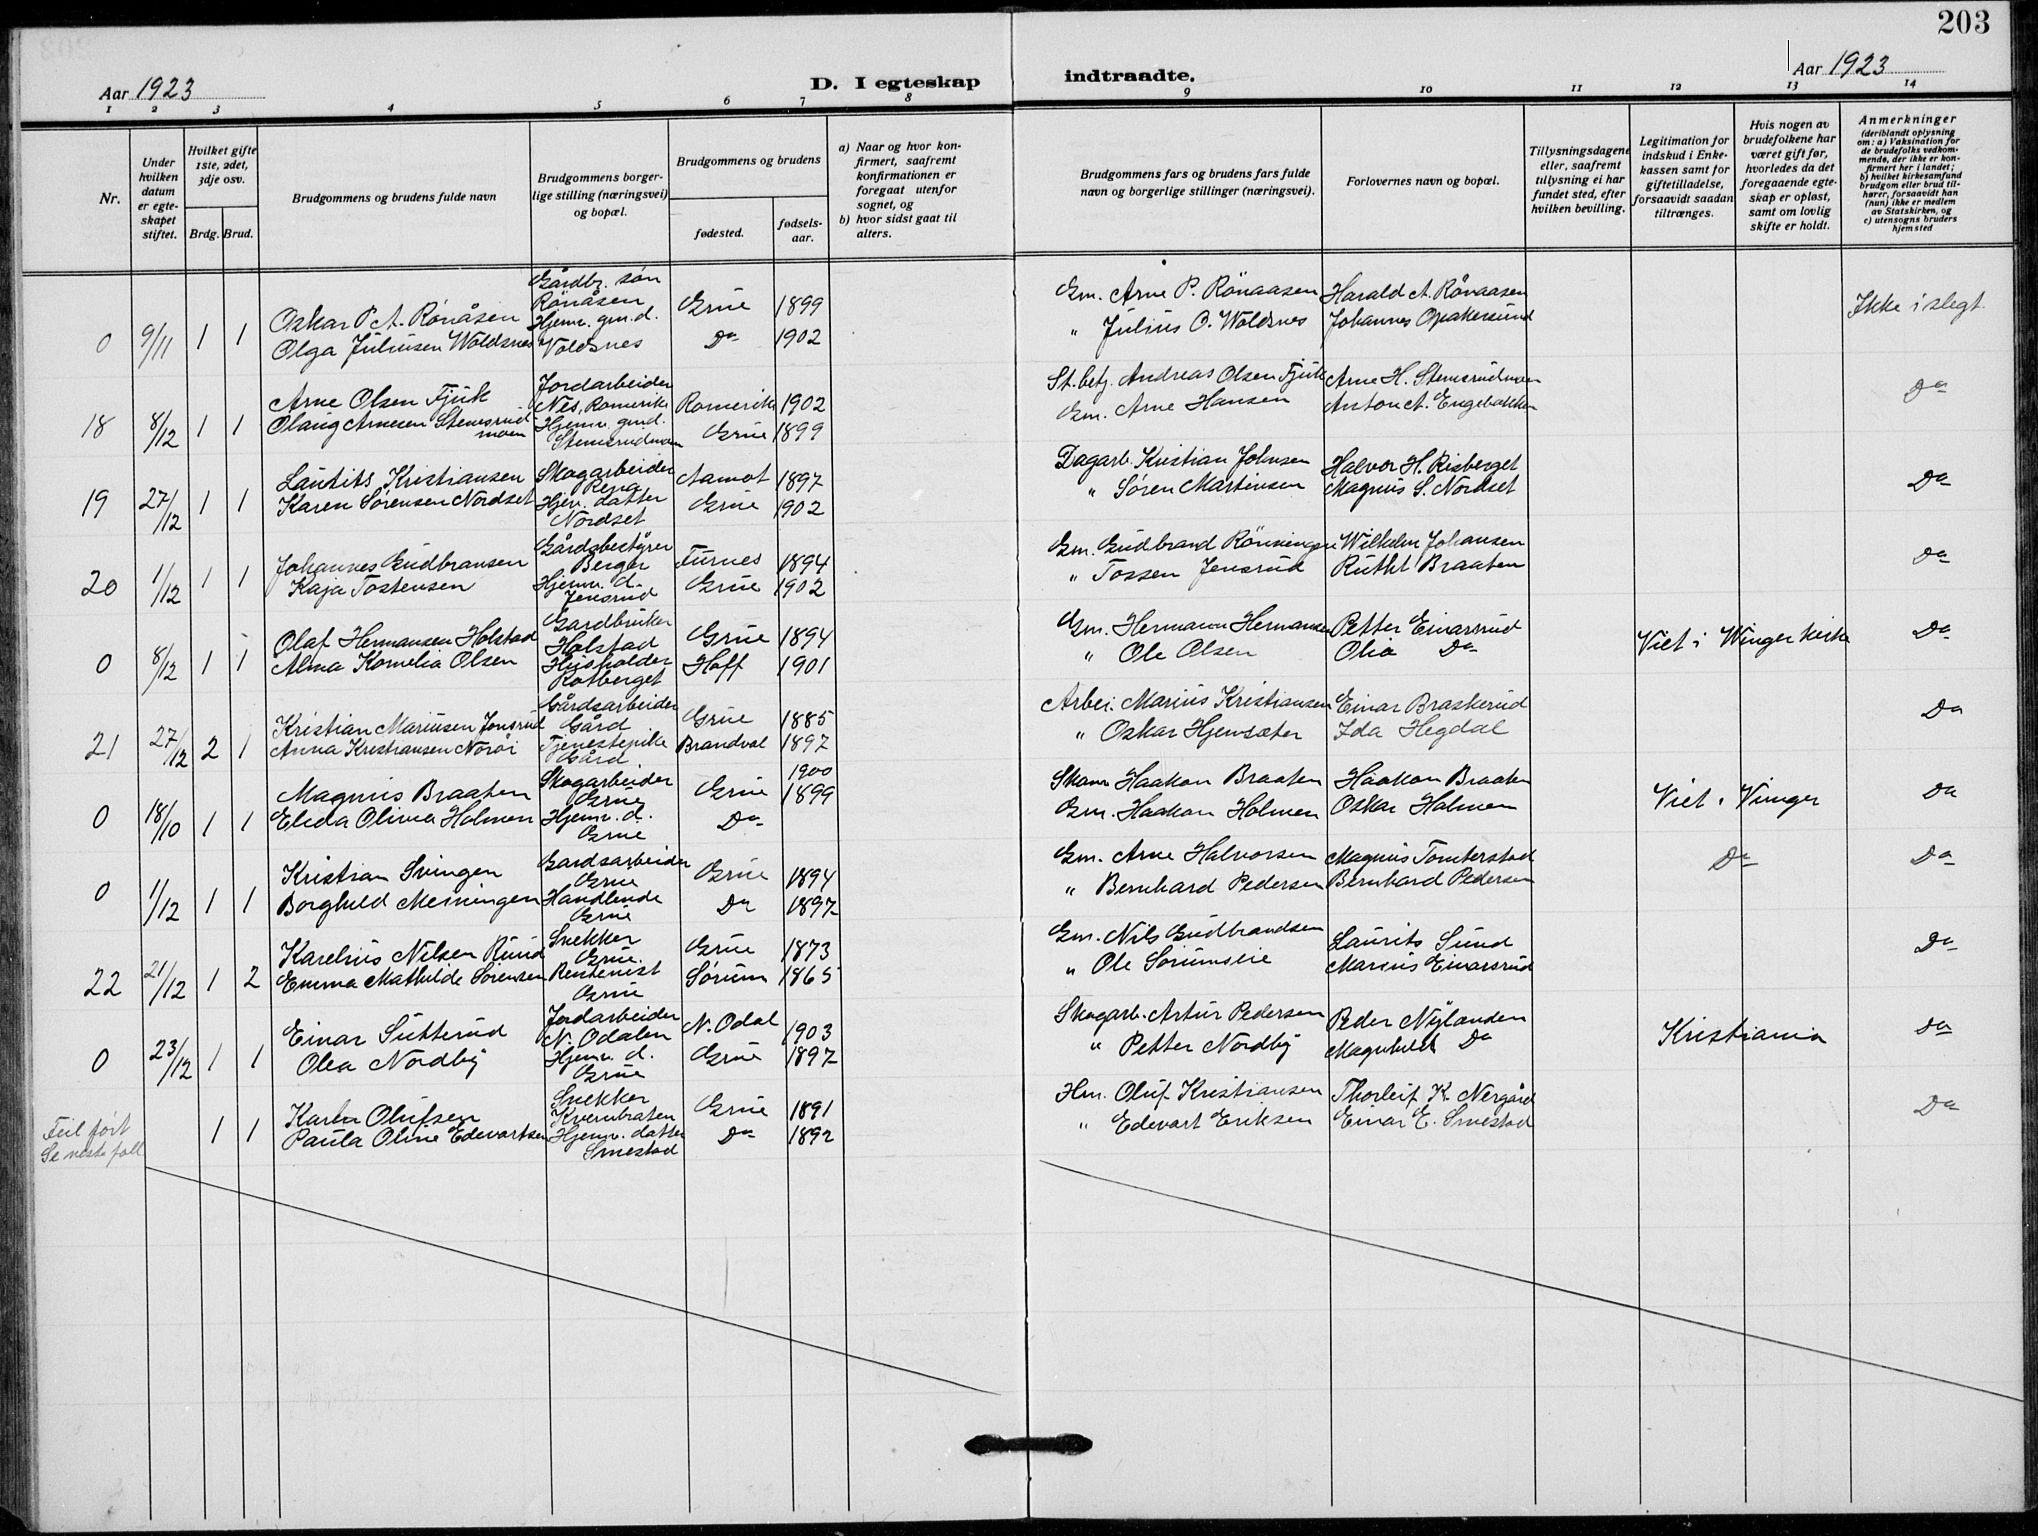 203
Aar 1923
D. I egteskap indtraadte.
Aar 1923
1 2 3 4 5 6 7 8 9 10 11 12 13 14
Nr.
Under hvilken datum er egte-skapet stiftet.
Hvilket gifte 1ste, 2det, 3dje osv.
Brdg. Brud.
Brudgommens og brudens fulde navn
Brudgommens borger-lige stilling (næringsvei) og bopæl.
Brudgommens og brudens
fødested.
fødsels-aar.
a) Naar og hvor kon-firmert, saafremt konfirmationen er foregaat utenfor sognet, og
b) hvor sidst gaat til alters.
Brudgommens fars og brudens fars fulde navn og borgerlige stillinger (næringsvei).
Forlovernes navn og bopæl.
Tillysningsdagene eller, saafremt tillysning ei har fundet sted, efter hvilken bevilling.
Legitimation for indskud i Enke-kassen samt for giftetilladelse, forsaavidt saadan tiltrænges.
Hvis nogen av brudefolkene har været gift før, hvorledes da det foregaaende egte-skap er opløst, samt om lovlig skifte er holdt.
Anmerkninger
(deriblandt oplysning om: a) Vaksination for de brudefolks vedkom-mende, der ikke er kon-firmert her i landet; b) hvilket kirkesamfund brudgom eller brud til-hører, forsaavidt han (hun) ikke er medlem av Statskirken, og c) utensogns bruders hjemsted
0 9/11 1 1
Oskar P. A. Rönåsen
Olga Juliusen Woldsnes
Gårdbr. søn
Rönåsen
Hjemv. gm. d.
Voldsnes
Grue 1899
Do 1902
Gm. Arne P. Rönaasen
" Julius O. Woldsnes
Harald A. Rönaasen
Johannes Opakersund
Ikke i slegt.
18 8/12 1 1
Arne Olsen Fjuk
Olaug Arnesen Stemsrud
moen
Jordarbeider
Nes, Romerike
Hjemv. gmd.
Stemsrudmoen
Romerike 1902
Grue 1899
St. betj. Andreas Olsen Fjuk
Gm. Arne Hansen
Arne H. Stemsrudmoen
Anton A. Engebakken
Do
19 27/12 1 1
Lauritz Kristiansen
Karen Sørensen Nordset
Skogarbeider
Rena
Hjev. datter
Nordset
Aamot 1897
Grue 1902
Dagarb. Kristian Johnsen
" Søren Martinsen
Halvor H. Risberget
Magnus S. Nordset
Do
20 1/12 1 1
Johannes Gudbransen
Kaja Tostensen
Gårdsbestyrer
Berger
Hjemv. d.
Jensrud
Furnes 1894
Grue 1902
Gm. Gudbrand Rönningen
" Tossen Jensrud
Wilhelm Johansen
Ruthl Braaten
Do
0 8/12 1 1
Olaf Hermansen Holstad
Alma Kornelia Olsen
Gardbruker
Holstad
Husholder
Rotberget
Grue 1894
Hoff 1901
Gm. Hermann Hermansen
" Ole Olsen
Petter Einarsrud
Olia Do
Viet i Winger kirke
Do
21 27/12 2 1
Kristian Mariusen Jonsrud
Anna Kristiansen Noroi
Gårdsarbeider
Gård
Tjenestepike
Gård
Grue 1885
Brandval 1897
Arbei. Marius Kristiansen
" Oskar Hjemsæter
Einar Braskerud
Ida Hegdal
Do
0 18/10 1 1
Magnus Braaten
Elida Olivia Holmen
Skogarbeider
Grue
Hjemv. d.
Grue
Grue 1900
Do 1899
Skom Haakon Braaten
Gm. Haakon Holmen
Haakon Braaten
Oskar Holmen
Viet i Vinger
Do
0 1/12 1 1
Kristian Svingen
Borghild Meiningen
Gardsarbeider
Grue
Handlende
Grue
Grue 1894
Do 1897
Gm. Arne Halvorsen
" Bernhard Pedersen
Magnus Tomterstad
Bernhard Pedersen
Do
Do
22 21/12 1 2
Karelius Nilsen Rund
Emma Mathilde Sørensen
Snekker
Grue.
Rentenist
Grue
Grue 1873
Sørum 1865
Gm. Nils Gudbrandsen
" Ole Sørumseie
Laurits Sund
Marius Einarsrud
Do
0 23/12 1 1
Einar Sutterud
Olea Nordby
Jordarbeider
N. Odalen
Hjemv. d.
Grue
N. Odal 1903
Grue 1897
Skogarb. Artur Pedersen
" Petter Nordby
Peder Nylanden
Magnhild Do
Kristiania
Do
Feil fört
Se neste fall
1 1
Karl Olufsen
Paula Oline Edevartsen
Snekker
Kvernbraten
Hjemv. datter
Smestad
Grue 1891
Do 1892
Hm. Oluf Kristiansen
" Edevart Eriksen
Thorleif K. Nergård
Einar E. Smestad
Do